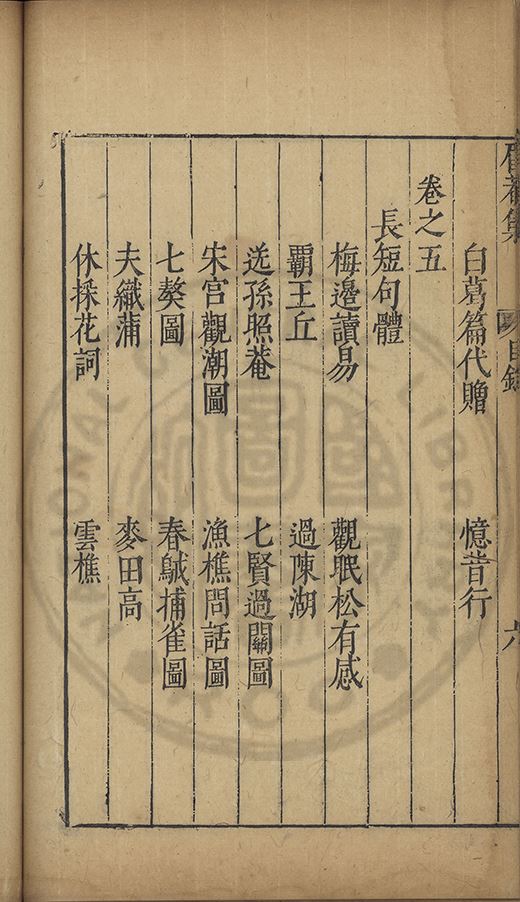 眉菴集 目錄 六
白葛篇代贈 憶昔行
卷之五
長短句體
梅邊讀易 觀眠松有感
覇王丘 過陳湖
送孫照菴 七賢過關圖
宋宮觀潮圖 漁樵問話圖
七獒圖 春 捕雀圖
夫織蒲 麥田高
休採花詞 雲樵